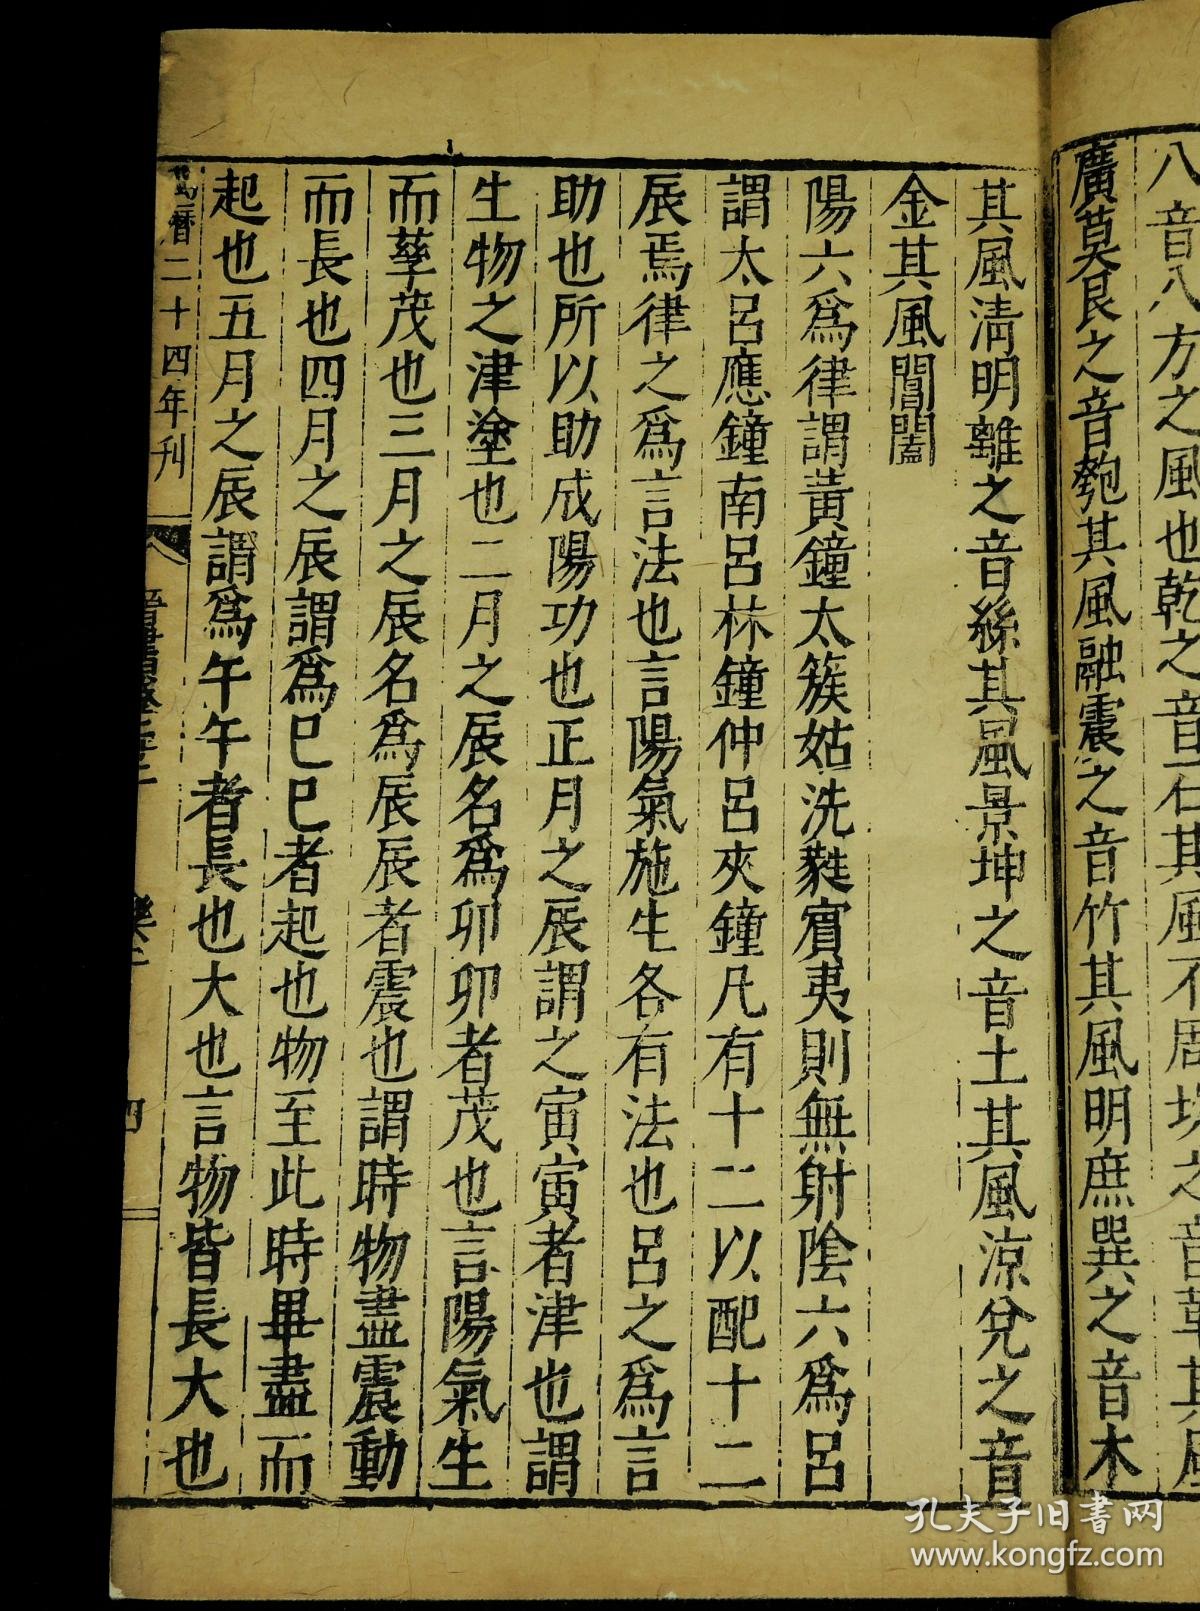 八音八方之風也乾之音石其風不周坎之音革其風
廣莫艮之音匏其風融震之音竹其風明庶巽之音木
其風清明離之音絲其風景坤之音土其風涼兌之音
金其風閶闔
陽六為律謂黃鐘太簇姑洗蕤賓夷則無射陰六為呂
謂太呂應鐘南呂林鐘仲呂夾鐘凡有十二以配十二
辰焉律之為言法也言陽氣施生各有法也呂之為言
助也所以助成陽功也正月之辰謂之寅寅者津也謂
生物之津塗也二月之辰名為卯卯者茂也言陽氣生
而孳茂也三月之辰名為辰辰者震也謂時物盡震動
而長也四月之辰謂為巳巳者起也物至此時畢盡而
起也五月之辰謂為午午者長也大也言物皆長大也
萬曆二十四年刊
四
孔夫子旧书网
www.kongfz.com